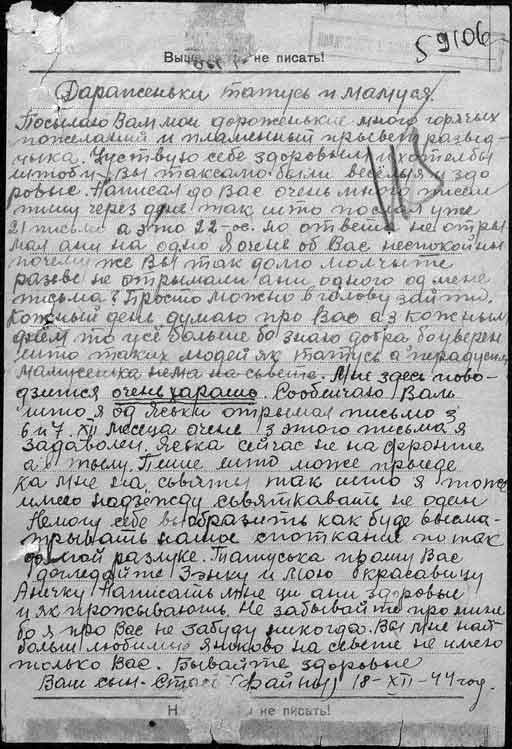 59106
Выше не писать!
Дараженьки татусь и мамуся.
Посылаю Вам мои дороженькие много горячых
пожелания и пламенный прывет разьвед-
чыка. Чуствую себе здоровым и хотелбы
штобы и Вы таксамо были веселыя и здо
ровые. Написал до Вас очень много писем
пишу через дня так што послал уже
21 письмо а это 22-ое. но ответа не отры
мал ани на одно Я очень об Вас неспокойны
почему же Вы так долго молчыте
разьве не отрымали ани одного од мене
письма? Просто можно в голову зайти.
Кожный день думаю про Вас а з кожным
днём то усё больше бо знаю добра бо уверен
што таких людей як татусь а
мамусенка нема на сьвете. Мне здесь пово-
дзится очень харашо. Сообшчаю Вам
што я од Яськи отрымал письмо з
6 и 7. XII месеца очень з этого письма я
задаволен. Яська сейчас не на фронте
а в тылу. Пише што може прыеде
ка мне на сьвенты так што я тоже
имею надзежду сьвяткавать не один
Немогу себе вообразить как буде высма-
трывать нашое споткание по так
долгой разлуке. Татуська прошу Вас
догледайте Зэнку и мою красавицу
Анечку Написать мне ци ани здоровые
и як прожывають. Не забывайте про мине
бо я про Вас не забуду никогда. Вы мне най
больш любимые я никово на сьвете не имею
только Вас. Бывайте здоровые
Ваш сын - Стась (Файны) 18-XII-44 год.
не писать!